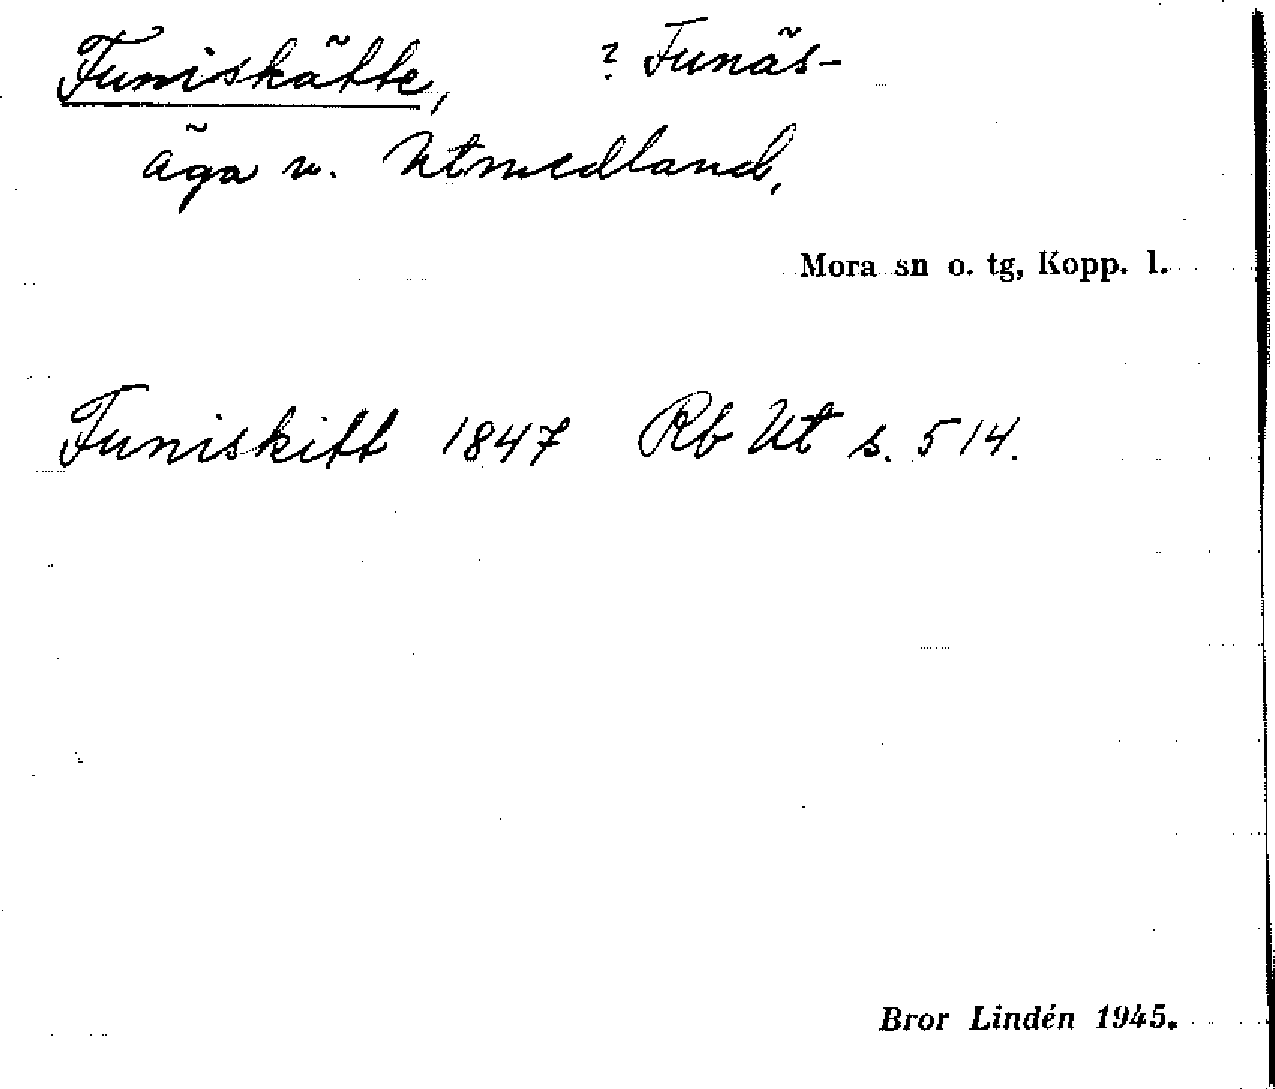 Funiskätte, ? Funäs-
äga v. Utmedland,
Mora sn o. tg, Kopp. l.
Funiskitt 1847 Rb Ut s. 514.
Bror Lindén 1945.